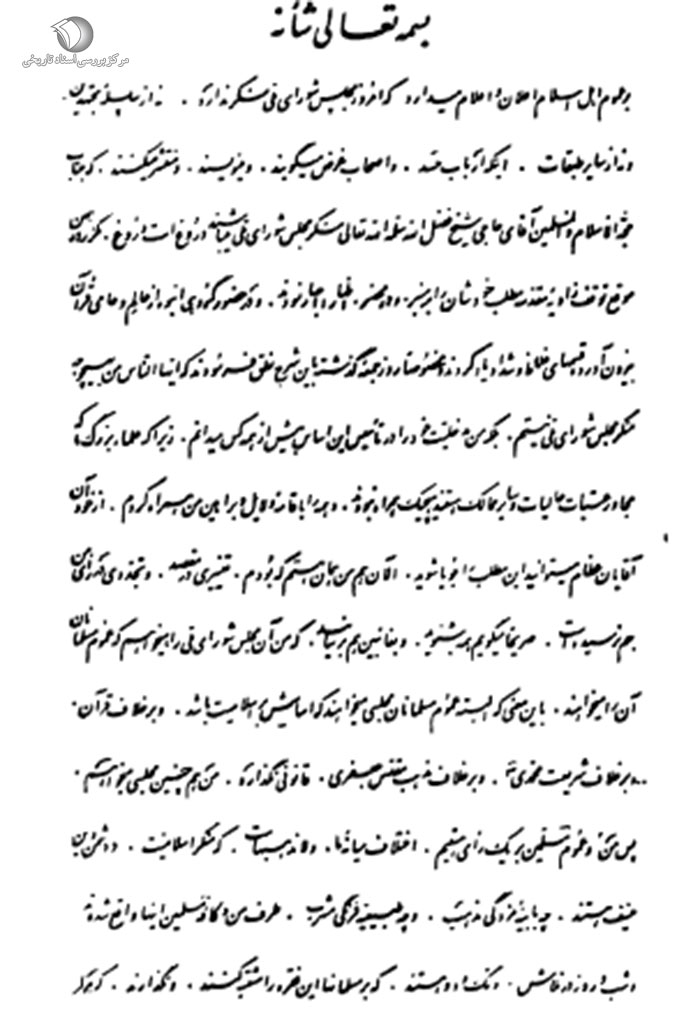 مرکز بررسی اسناد تاریخی
بسمه تعالی شأنه
بعموم اهل اسلام اعلان و اعلام میدارد که امروز مجلس شورای ملی منکر ندارد . نه از سلسلهٔ مجتهدین
و نه از سایر طبقات . اینکه ارباب حسد . و اصحاب غرض میگویند . و مینویسند . و منتشر میکنند . که جناب
حجة الاسلام والمسلمین آقای حاجی شیخ فضل الله سلمه الله تعالی منکر مجلس شورای ملی میباشند دروغ است دروغ . مکرر در همین
موقع توقف زاویهٔ مقدسه مطلب خودشان را بر منبر . و در محضر . اظهار و اجهار نمودند . و در حضور گروهی انبوه از عالم و عامی قرآن
بیرون آورد و قسمهای غلاظ و شداد یاد کردند و مخصوصا روز جمعهٔ گذشته باین شرح نطق فرمودند که ایها الناس من بهیچوجه
منکر مجلس شورای ملی نیستم . بلکه من مدخلیت خود را در تأسیس این اساس بیش از همه کس میدانم . زیرا که علماء بزرگ ما که
مجاور عتبات عالیات و سایر ممالک هستند هیچیک همراه نبودند . و همه را باقامهٔ دلایل و براهین من همراه کردم . از خود آن
آقایان عظام میتوانید این مطلب را جویا شوید . الآن هم من همان هستم که بودم . تغییری در مقصد . و تجددی در رأی من
بهم نرسیده است . صریحا میگویم همه بشنوید . و بغائبین هم برسانید . که من آن مجلس شورای ملی را میخواهم که عموم مسلمانان
آن را میخواهند . باین معنی که البته عموم مسلمانان مجلسی میخواهند که اساسش بر اسلامیت باشد . و بر خلاف قرآن .
و بر خلاف شریعت محمدی ص . و بر خلاف مذهب مقدس جعفری . قانونی نگذارد . من هم چنین مجلسی میخواهم .
پس من و عموم مسلمین بر یک رأی هستیم . اختلاف میانهٔ ما . و لامذهبهاست . که منکر اسلامیت . و دشمن دین
حنیف هستند . چه بابیهٔ مزدکی مذهب . و چه طبیعیهٔ فرنگی مشرب . طرف من و کافهٔ مسلمین اینها واقع شده‌اند
و شب و روز در تلاش . و تک و دو هستند . که بر مسلمانها این فقره را مشتبه کنند . و نگذارند . که مردم